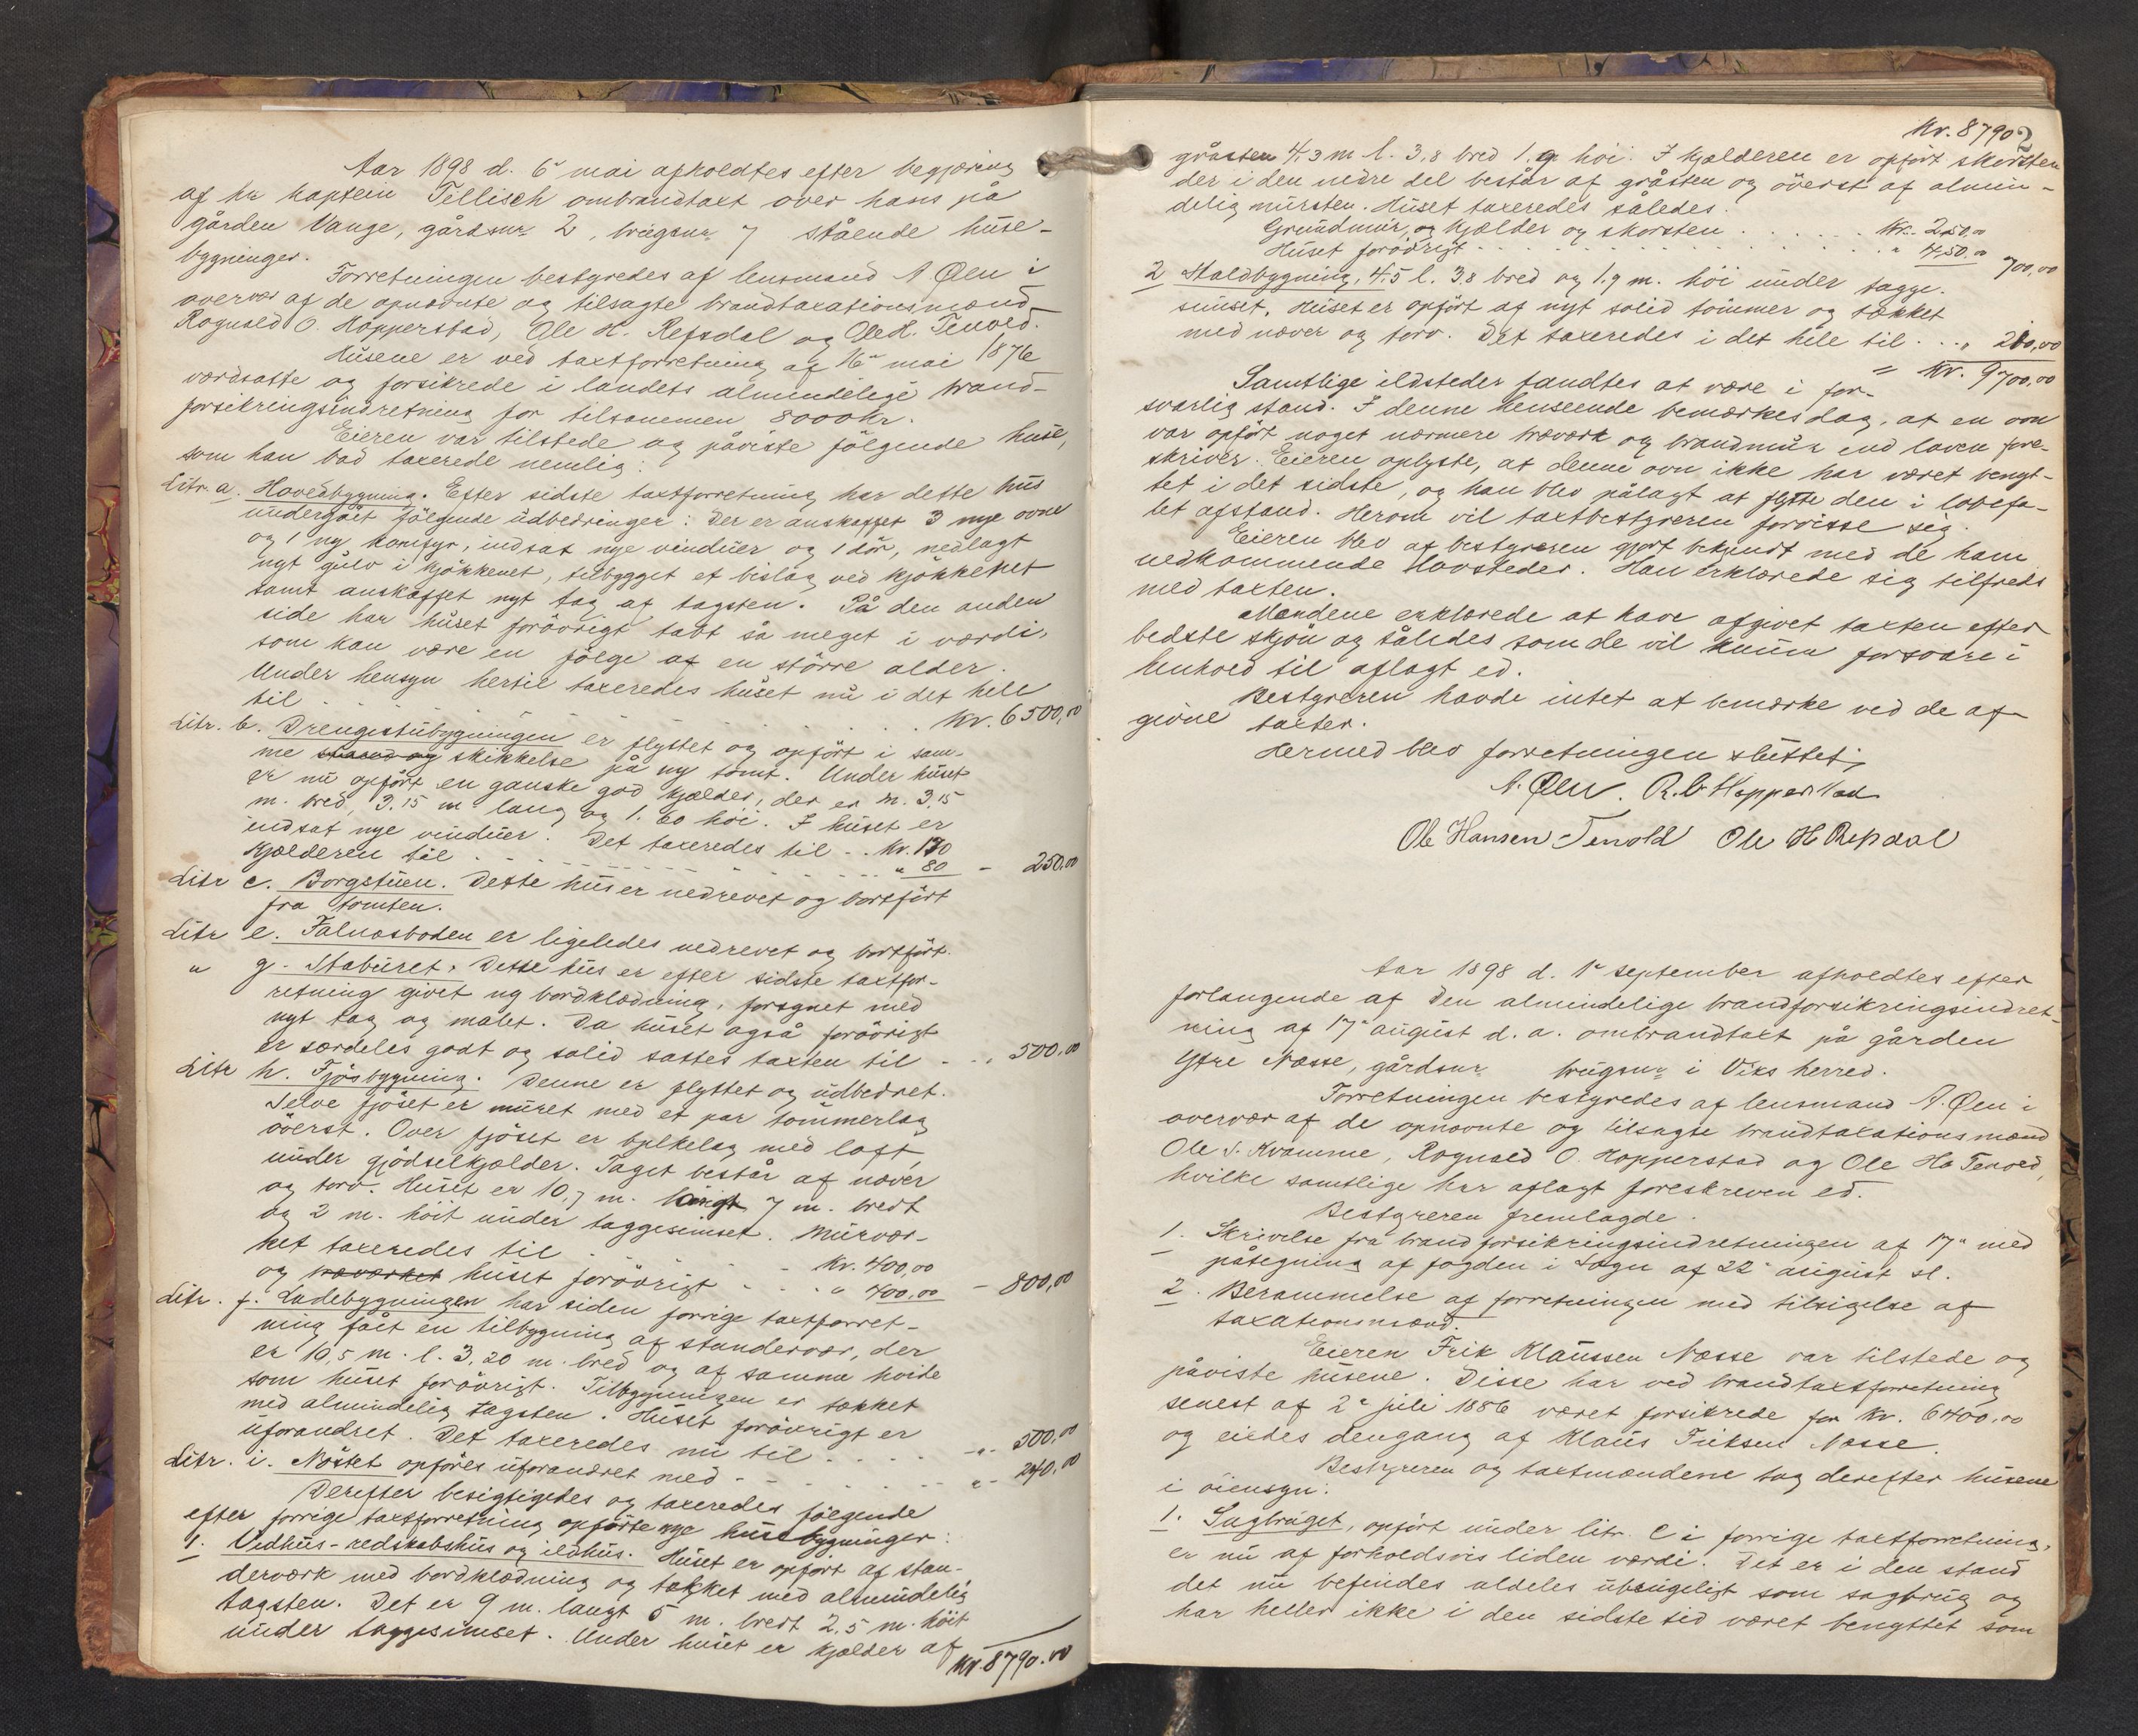 Aar 1898 d. 6te mai afholdtes efter begjæring
af hr kaptein Tillisch ombrandtaxt over hans på
gården Vange, gårdsnr 2, brugsnr 7 stående huse-
bygninger.
Forretningen bestyredes af lensmand A Øen i
overvær af de opnævnte og tilsagte brandtaxationsmænd
Rognald O. Hopperstad, Ole H. Refsdal og Ole H. Tenold.
Husene er ved taxtforretning af 16de mai 1876
værdsatte og forsikrede i landets almindelige brand-
forsikringsindretning for tilsammen 8000 kr.
Eieren var tilstede og påviste følgende huse,
som han bad taxerede nemlig:
Litr. a. Hovedbygning. Efter sidste taxtforretning har dette hus
undergået følgende udbedringer: Der er anskaffet 3 nye ovne
og 1 ny komfyr, indsat nye vinduer og 1 dör, nedlagt
nyt gulv i kjøkkenet, tilbygget et bislag ved kjøkkenet
samt anskaffet nyt tag af tagsten. På den anden
side har huset forøvrigt tabt så meget i værdi,
som kan være en følge af en större alder.
Under hensyn hertil taxeredes huset nu i det hele
til . . . . . . Kr. 6500,00
Litr. b. Drengestubygningen er flyttet og opført i sam-
me stand og skikkelse på ny tomt. Under huset
er nu opført en ganske god kjælder, der er m. 3.15
m. bred, 3.15 m lang og 1.60 høi. I huset er
indsat nye vinduer. Det taxeredes til . . Kr. 170
Kjælderen til . . . . . " 80 - 250,00
Litr c. Borgstuen. Dette hus er nedrevet og bortført
fra tomten.
Litr e. Falnasboden er ligeledes nedrevet og bortført.
" g. Staburet. Dette hus er efter sidste taxtfor-
retning givet ny bordklædning, forsynet med
nyt tag og malet. Da huset også forøvrigt
er særdeles godt og solid sattes taxten til - . . 500,00
Litr h. Fjösbygning. Denne er flyttet og udbedret.
Selve fjöset er muret med et par tömmerlag
överst. Over fjöset er bjelkelag med loft,
under gjödselkjælder. Taget består af næver
og torv. Huset er 10,7 m. langt 7 m. bredt
og 2 m. høit under taggesimset. Murvær-
ket taxeredes til . . . Kr. 400,00
og træværket huset forøvrigt . . . " 400,00 - 800,00
Litr. f. Ladebygningen har siden forrige taxtforret-
ning fået en tilbygning af standervær, der
er 10,5 m. l. 3,20 m. bred og af samme høide
som huset forøvrigt. Tilbygningen er tækket
med almindelig tagsten. Huset forøvrigt er
uforandret. Det taxeredes nu til . . . . - " - 500,00
Litr. i. Nöstet opføres uforandret med - - . . . " - 240,00
Derefter besigtigedes og taxeredes følgende
efter forrige taxtforretning opførte nye husebygninger:
1. Vedhus-redskabshus og ildhus. Huset er opført af stan-
derværk med bordklædning og tækket med almindelig
tagsten. Det er 9 m. langt 5 m. bredt 2,5 m. høit
under taggesimset. Under huset er kjælder af
Kr. 8790.00
Kr. 8790
2
gråsten 4.3 m l. 3,8 bred 1.9 høi. I kjælderen er opført skorsten
der i den nedre del består af gråsten og överst af almin-
delig mursten. Huset taxeredes således.
Grundmur, og kjælder og skorsten . . . . . Kr. 250,00
Huset forøvrigt . . . . . . . " 450,00 700,00
2 Staldbygning, 4.5 l. 3.8 bred og 1.9 m. höi under tagge-
simset. Huset er opført af nyt solid tömmer og tækket
med næver og torv. Det taxeredes i det hele til . . " 210,00
= Kr. 9700,00
Samtlige ildsteder fandtes at være i for-
svarlig stand. I denne henseende bemærkes dog, at en ovn
var opført noget nærmere træværk og brandmur end loven fore-
skriver. Eieren oplyste, at denne ovn ikke har været benyt-
tet i det sidste, og han blev pålagt at flytte den i lovbefa-
let afstand. Herom vil taxtbestyreren forvisse sig.
Eieren blev af bestyreren gjort bekjendt med de ham
vedkommende Lovsteder. Han erklærede sig tilfreds
med taxten.
Mændene erklærede at have afgivet taxten efter
bedste skjön og således som de vil kunne forsvare i
henhold til aflagt ed.
Bestyreren havde intet at bemærke ved de af-
givne taxter.
Hermed blev forretningen sluttet;
A. Øen. R. O Hopperstad
Ole Hansen Tenold Ole H Refsdal
Aar 1898 d. 1te september afholdtes efter
forlangende af Den almindelige brandforsikringsindret-
ning af 17de august d. a. ombrandtaxt på gården
Ytre Næsse, gårdsnr brugsnr i Viks herred.
Forretningen bestyredes af lensmand A. Øen i
overvær af de opnævnte og tilsagte brandtaxationsmænd
Ole S. Kvamme, Rognald O. Hopperstad og Ole Hs Tenold,
hvilke samtlige har aflagt foreskreven ed.
Bestyreren fremlagde.
1. Skrivelse fra brandforsikringsindretningen af 17de med
påtegning af fogden i Sogn af 22de august sl.
2. Berammelse af forretningen med tilsigelse af
taxationsmænd.
Eieren Frik Klaussen Næsse var tilstede og
påviste husene. Disse har ved brandtaxtforretning
senest af 2de juli 1886 været forsikrede for Kr. 6400,00
og eiedes dengang af Klaus Friksen Næsse.
Bestyreren og taxtmændene tog derefter husene
i öiensyn:
1. Sagbruget, opført under litr. C i forrige taxtforretning,
er nu af forholdsvis liden værdi. Det er i den stand
det nu befindes aldeles ubrugeligt som sagbrug og
har heller ikke i den sidste tid været benyttet som